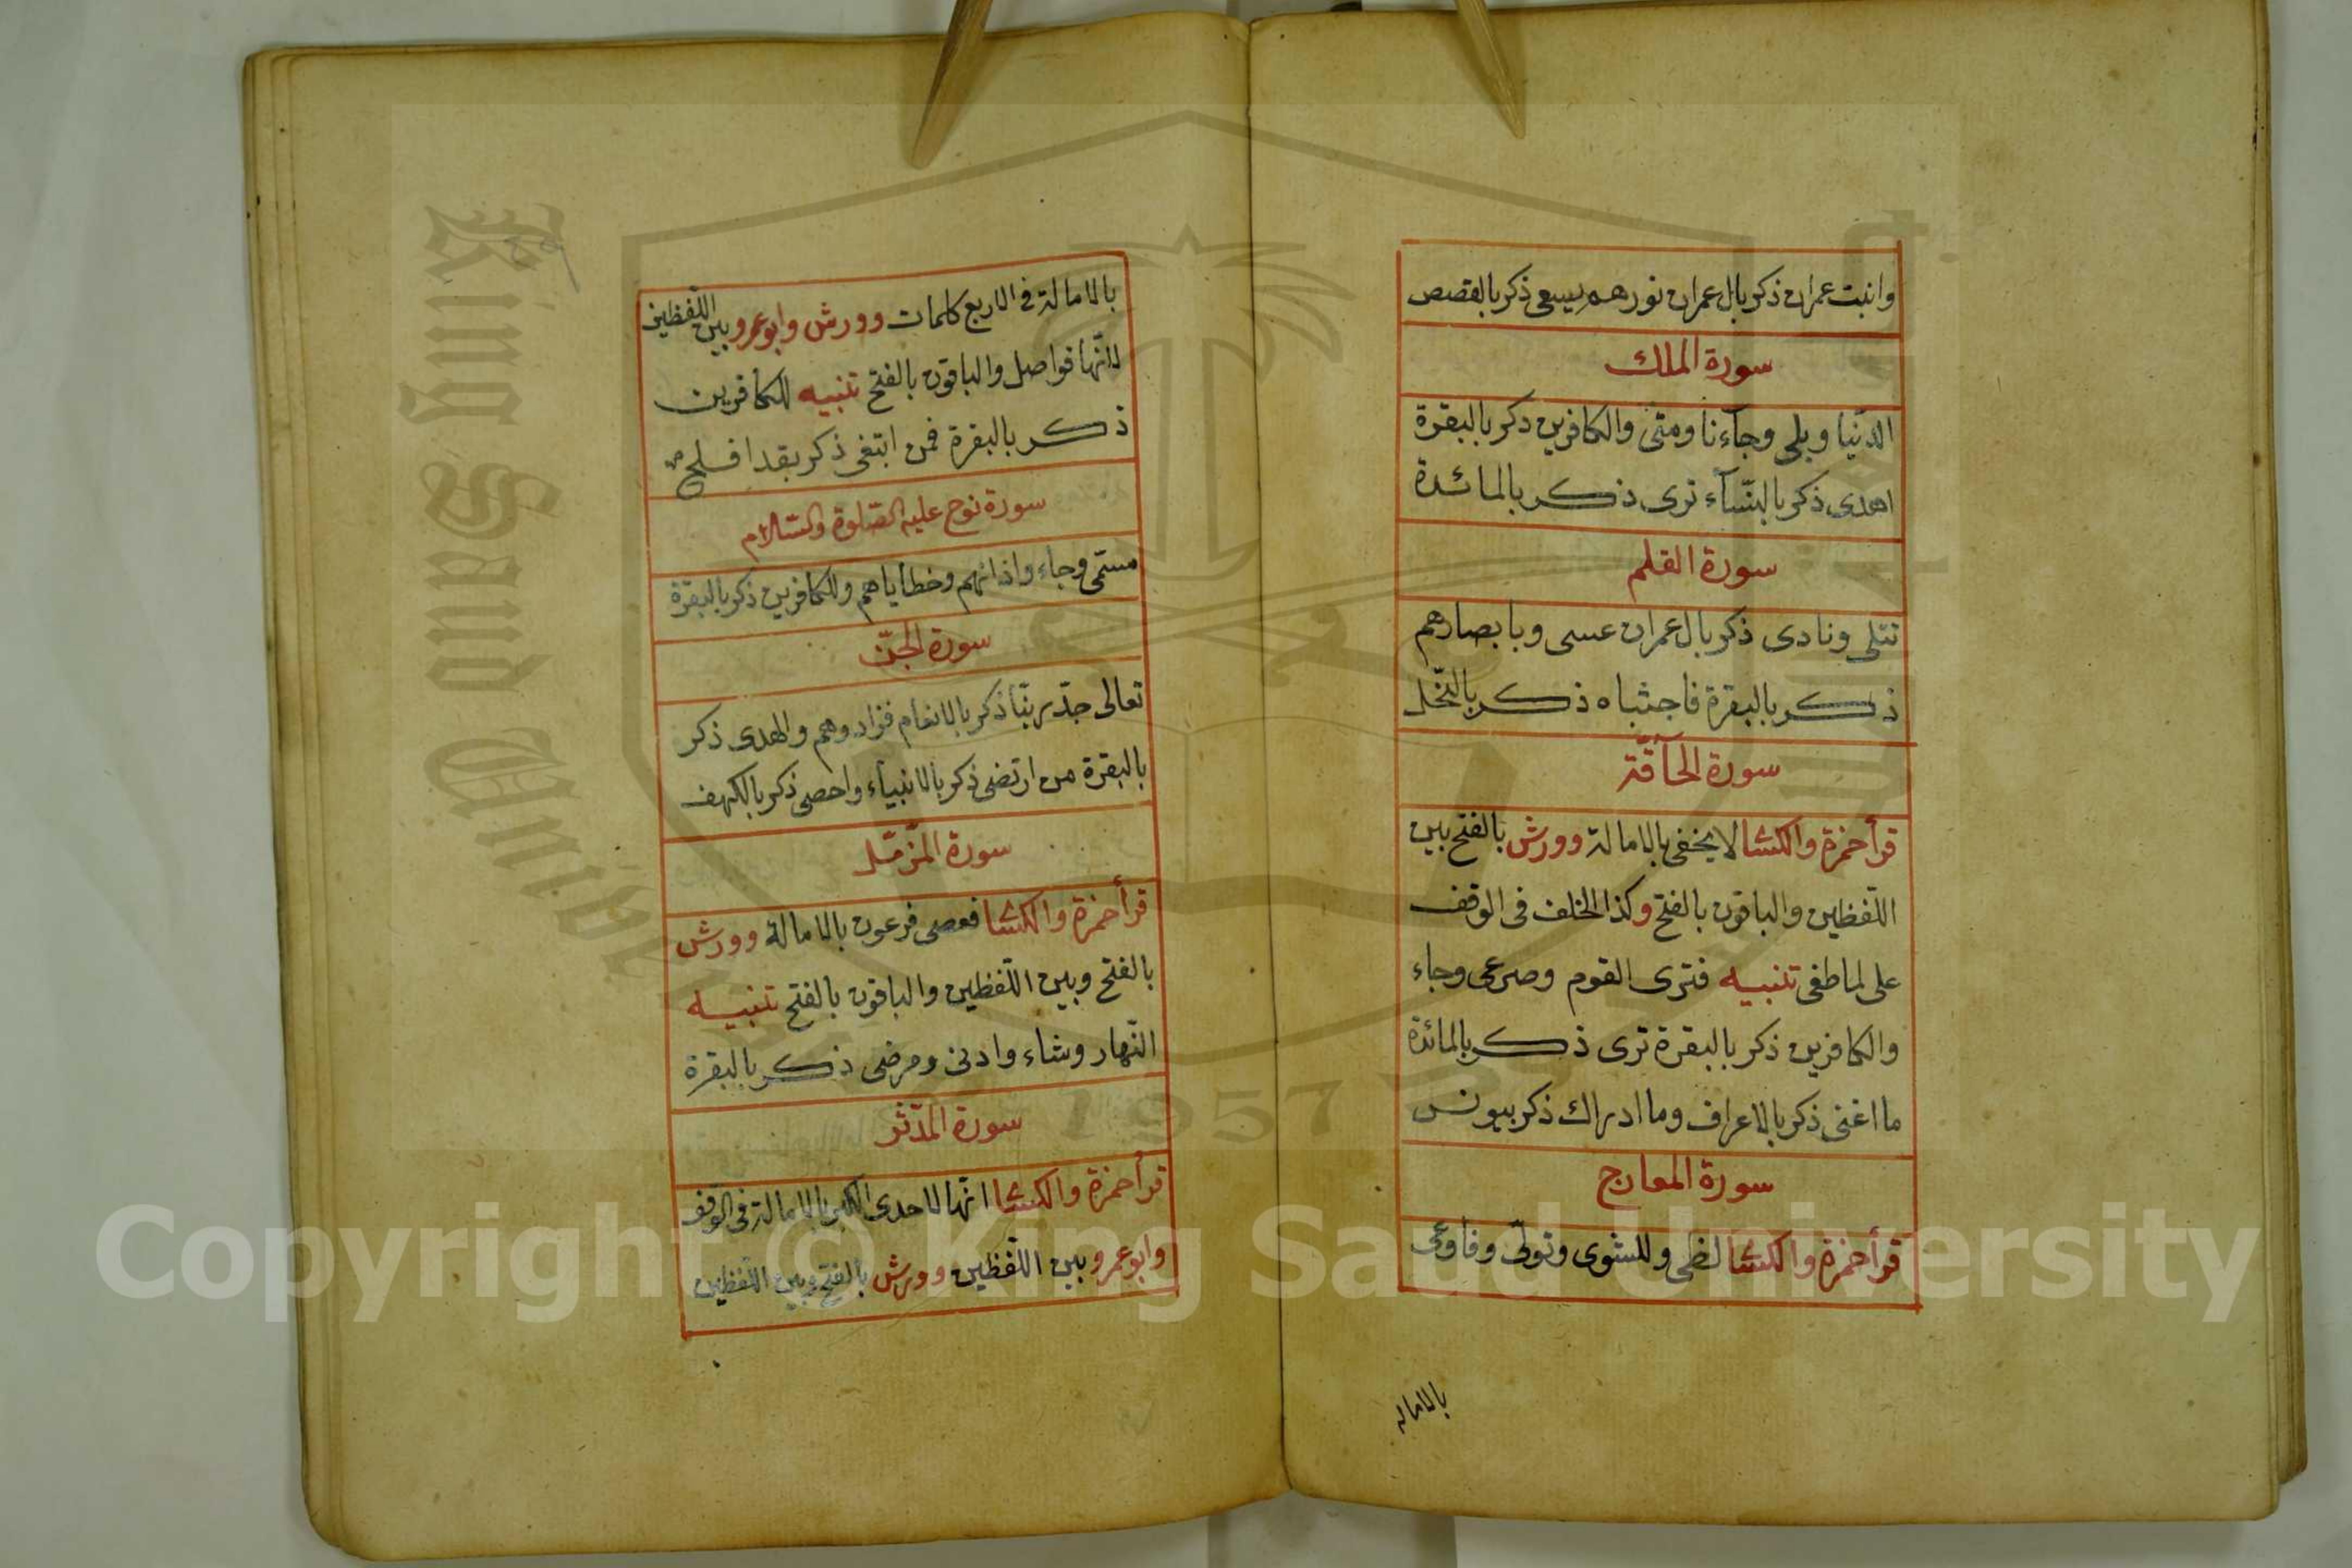 وابنت عمران ذكر بال عمران نورهم يسعى ذكر بالقصص
سورة الملك
الدنيا وبلى وجآءنا ومتى والكافرين ذكر بالبقرة
اهدى ذكر بالنسآء ترى ذكر بالمائدة
سورة القلم
تتلى ونادى ذكر بال عمران عسى وبابصارهم
ذكر بالبقرة فاجتباه ذكر بالنّحل
سورة الحآقّة
قرأ حمزة والكسا لا يخفى بالامالة وورش بالفتح بين
اللّفظين والباقون بالفتح وكذا الخلف فى الوقف
على لما طغى تنبيه فترى القوم وصرعى وجاء
والكافرين ذكر بالبقرة ترى ذكر بالمائدة
ما اغنى ذكر بالاعراف وما ادراك ذكر بيونس
سورة المعارج
قرأ حمزة والكسا لظى وللشوى وتولّى وفاوعى
بالاماله
بالامالة فى الاربع كلمات وورش وابو عمرو بين اللّفظين
لانّها فواصل والباقون بالفتح تنبيه للكافرين
ذكر بالبقرة فمن ابتغى ذكر بقد افلح
سورة نوح عليه الصّلوة والسّلام
مسمّى وجاء واذانهم وخطاياهم وللكافرين ذكر بالبقرة
سورة الجنّ
تعالى جدّ ربّنا ذكر بالانعام فزادوهم والهدى ذكر
بالبقرة من ارتضى ذكر بالانبيآء واحصى ذكر بالكهف
سورة المزّمّل
قرأ حمزة والكسا فعصى فرعون بالامالة وورش
بالفتح وبين اللّفظين والباقون بالفتح تنبيه
النّهار وشاء وادنى ومرضى ذكر بالبقرة
سورة المدّثر
قرأ حمزة والكسا انّها لاحدى الكبر بالامالة فى الوقف
وابو عمرو بين اللّفظين وورش بالفتح وبين اللّفظين
King Saud University
1957
Copyright © King Saud University